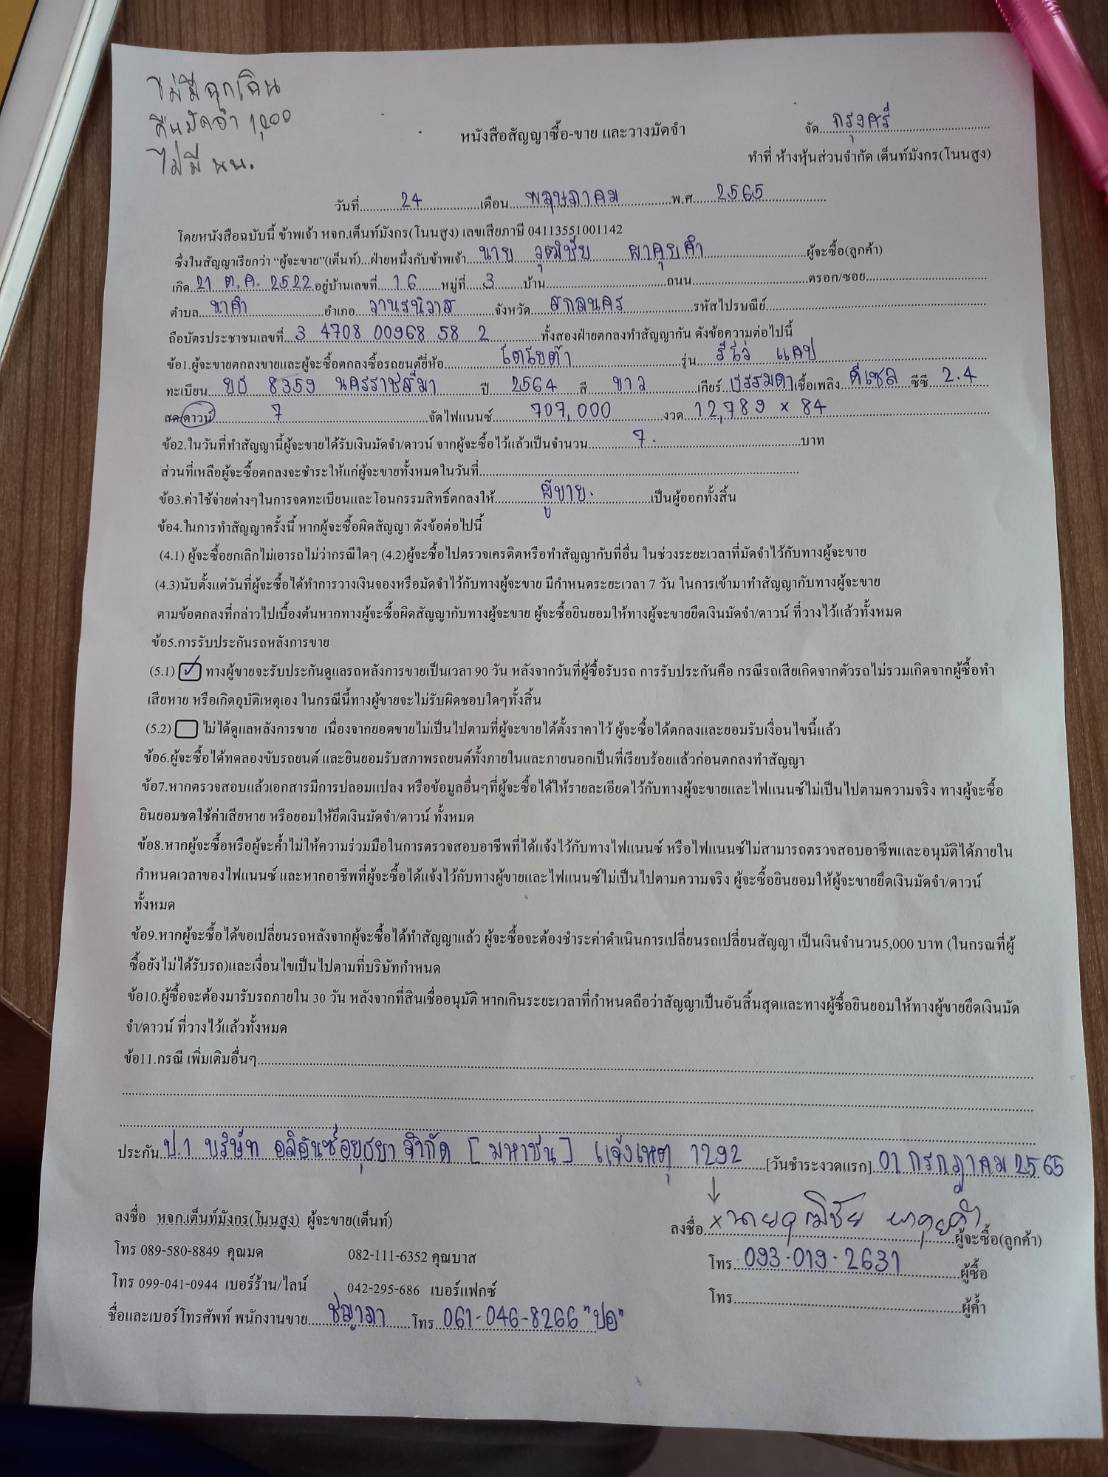 ไม่มีฉุกเฉิน
คืนมัดจำ 1,000
ไม่มี พน.
หนังสือสัญญาซื้อ-ขาย และวางมัดจำ
จัด กรุงศรี
ทำที่ ห้างหุ้นส่วนจำกัด เต็นท์มังกร(โนนสูง)
วันที่ 24 เดือน พฤษภาคม พ.ศ 2565
โดยหนังสือฉบับนี้ ข้าพเจ้า หจก.เต็นท์มังกร(โนนสูง) เลขเสียภาษี 04113551001142
ซึ่งในสัญญาเรียกว่า "ผู้จะขาย"(เต็นท์)...ฝ่ายหนึ่งกับข้าพเจ้า นาย วุฒิชัย ผาคุยคำ ผู้จะซื้อ(ลูกค้า)
เกิด 21 ต.ค. 2522 อยู่บ้านเลขที่ 16 หมู่ที่ 3 บ้าน ถนน ตรอก/ซอย
ตำบล นาคำ อำเภอ วานรนิวาส จังหวัด สกลนคร รหัสไปรษณีย์
ถือบัตรประชาชนเลขที่ 3 4708 00968 58 2 ทั้งสองฝ่ายตกลงทำสัญญากัน ดังข้อความต่อไปนี้
ข้อ1.ผู้จะขายตกลงขายและผู้จะซื้อตกลงซื้อรถยนต์ยี่ห้อ โตโยต้า รุ่น รีโว่ แคป
ทะเบียน ขธ 8359 นครราชสีมา ปี 2564 สี ขาว เกียร์ ธรรมดา เชื้อเพลิง ดีเซล ซีซี 2.4
สด/ดาวน์ 7 จัดไฟแนนซ์ 707,000 งวด 12,789 × 84
ข้อ2.ในวันที่ทำสัญญานี้ผู้จะขายได้รับเงินมัดจำ/ดาวน์ จากผู้จะซื้อไว้แล้วเป็นจำนวน 7. บาท
ส่วนที่เหลือผู้จะซื้อตกลงจะชำระให้แก่ผู้จะขายทั้งหมดในวันที่
ข้อ3.ค่าใช้จ่ายต่างๆในการจดทะเบียนและโอนกรรมสิทธิ์ตกลงให้ ผู้ขาย. เป็นผู้ออกทั้งสิ้น
ข้อ4.ในการทำสัญญาครั้งนี้ หากผู้จะซื้อผิดสัญญา ดังข้อต่อไปนี้
(4.1) ผู้จะซื้อยกเลิกไม่เอารถไม่ว่ากรณีใดๆ (4.2)ผู้จะซื้อไปตรวจเครดิตหรือทำสัญญากับที่อื่น ในช่วงระยะเวลาที่มัดจำไว้กับทางผู้จะขาย
(4.3)นับตั้งแต่วันที่ผู้จะซื้อได้ทำการวางเงินจองหรือมัดจำไว้กับทางผู้จะขาย มีกำหนดระยะเวลา 7 วัน ในการเข้ามาทำสัญญากับทางผู้จะขาย
ตามข้อตกลงที่กล่าวไปเบื้องต้นหากทางผู้จะซื้อผิดสัญญากับทางผู้จะขาย ผู้จะซื้อยินยอมให้ทางผู้จะขายยึดเงินมัดจำ/ดาวน์ ที่วางไว้แล้วทั้งหมด
ข้อ5.การรับประกันรถหลังการขาย
(5.1) ✓ ทางผู้ขายจะรับประกันดูแลรถหลังการขายเป็นเวลา 90 วัน หลังจากวันที่ผู้ซื้อรับรถ การรับประกันคือ กรณีรถเสียเกิดจากตัวรถไม่รวมเกิดจากผู้ซื้อทำ
เสียหาย หรือเกิดอุบัติเหตุเอง ในกรณีนี้ทางผู้ขายจะไม่รับผิดชอบใดๆทั้งสิ้น
(5.2) ไม่ได้ดูแลหลังการขาย เนื่องจากยอดขายไม่เป็นไปตามที่ผู้จะขายได้ตั้งราคาไว้ ผู้จะซื้อได้ตกลงและยอมรับเงื่อนไขนี้แล้ว
ข้อ6.ผู้จะซื้อได้ทดลองขับรถยนต์ และยินยอมรับสภาพรถยนต์ทั้งภายในและภายนอกเป็นที่เรียบร้อยแล้วก่อนตกลงทำสัญญา
ข้อ7.หากตรวจสอบแล้วเอกสารมีการปลอมแปลง หรือข้อมูลอื่นๆที่ผู้จะซื้อได้ให้รายละเอียดไว้กับทางผู้จะขายและไฟแนนซ์ไม่เป็นไปตามความจริง ทางผู้จะซื้อ
ยินยอมชดใช้ค่าเสียหาย หรือยอมให้ยึดเงินมัดจำ/ดาวน์ ทั้งหมด
ข้อ8.หากผู้จะซื้อหรือผู้จะค้ำไม่ให้ความร่วมมือในการตรวจสอบอาชีพที่ได้แจ้งไว้กับทางไฟแนนซ์ หรือไฟแนนซ์ไม่สามารถตรวจสอบอาชีพและอนุมัติได้ภายใน
กำหนดเวลาของไฟแนนซ์ และหากอาชีพที่ผู้จะซื้อได้แจ้งไว้กับทางผู้ขายและไฟแนนซ์ไม่เป็นไปตามความจริง ผู้จะซื้อยินยอมให้ผู้จะขายยึดเงินมัดจำ/ดาวน์
ทั้งหมด
ข้อ9.หากผู้จะซื้อได้ขอเปลี่ยนรถหลังจากผู้จะซื้อได้ทำสัญญาแล้ว ผู้จะซื้อจะต้องชำระค่าดำเนินการเปลี่ยนรถเปลี่ยนสัญญา เป็นเงินจำนวน5,000 บาท (ในกรณที่ผู้
ซื้อยังไม่ได้รับรถ)และเงื่อนไขเป็นไปตามที่บริษัทกำหนด
ข้อ10.ผู้ซื้อจะต้องมารับรถภายใน 30 วัน หลังจากที่สินเชื่ออนุมัติ หากเกินระยะเวลาที่กำหนดถือว่าสัญญาเป็นอันสิ้นสุดและทางผู้ซื้อยินยอมให้ทางผู้ขายยึดเงินมัด
จำ/ดาวน์ ที่วางไว้แล้วทั้งหมด
ข้อ11.กรณี เพิ่มเติมอื่นๆ
ประกัน ป.1 บริษัท อลิอันซ์อยุธยา จำกัด [มหาชน] แจ้งเหตุ 1292 [วันชำระงวดแรก] 01 กรกฎาคม 2565
ลงชื่อ หจก.เต็นท์มังกร(โนนสูง) ผู้จะขาย(เต็นท์)
ลงชื่อ × นายวุฒิชัย ผาคุยคำ ผู้จะซื้อ(ลูกค้า)
โทร 089-580-8849 คุณมด 082-111-6352 คุณบาส
โทร. 093-019-2631 ผู้ซื้อ
โทร 099-041-0944 เบอร์ร้าน/ไลน์ 042-295-686 เบอร์แฟกซ์
โทร ผู้ค้ำ
ชื่อและเบอร์โทรศัพท์ พนักงานขาย ชัญาภา โทร 061-046-8266 "ปอ"